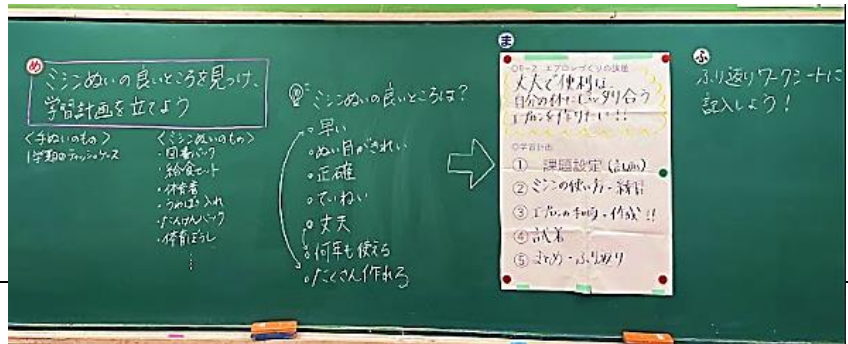 め
ミシンぬいの良いところを見つけ、
学習計画を立てよう
＜手ぬいのもの＞
1学期のティッシュケース
＜ミシンぬいのもの＞
・図書バック
・給食セット
・体育着
・うわばき入れ
・たんけんバック
・体育ぼうし
⋮
ミシンぬいの良いところは？
○早い
○ぬい目がきれい
○正確
○ていねい
○丈夫
○何年も使える
○たくさん作れる
ま
エプロンづくりの課題
丈夫で便利な、
自分の体にピッタリ合う
エプロンを作りたい!!
○学習計画
① 課題設定
② ミシンの使い方・練習
③ エプロンの 作成!!
④ 試着
⑤ まとめ・ふり返り
ふ
ふり返りワークシートに
記入しよう！